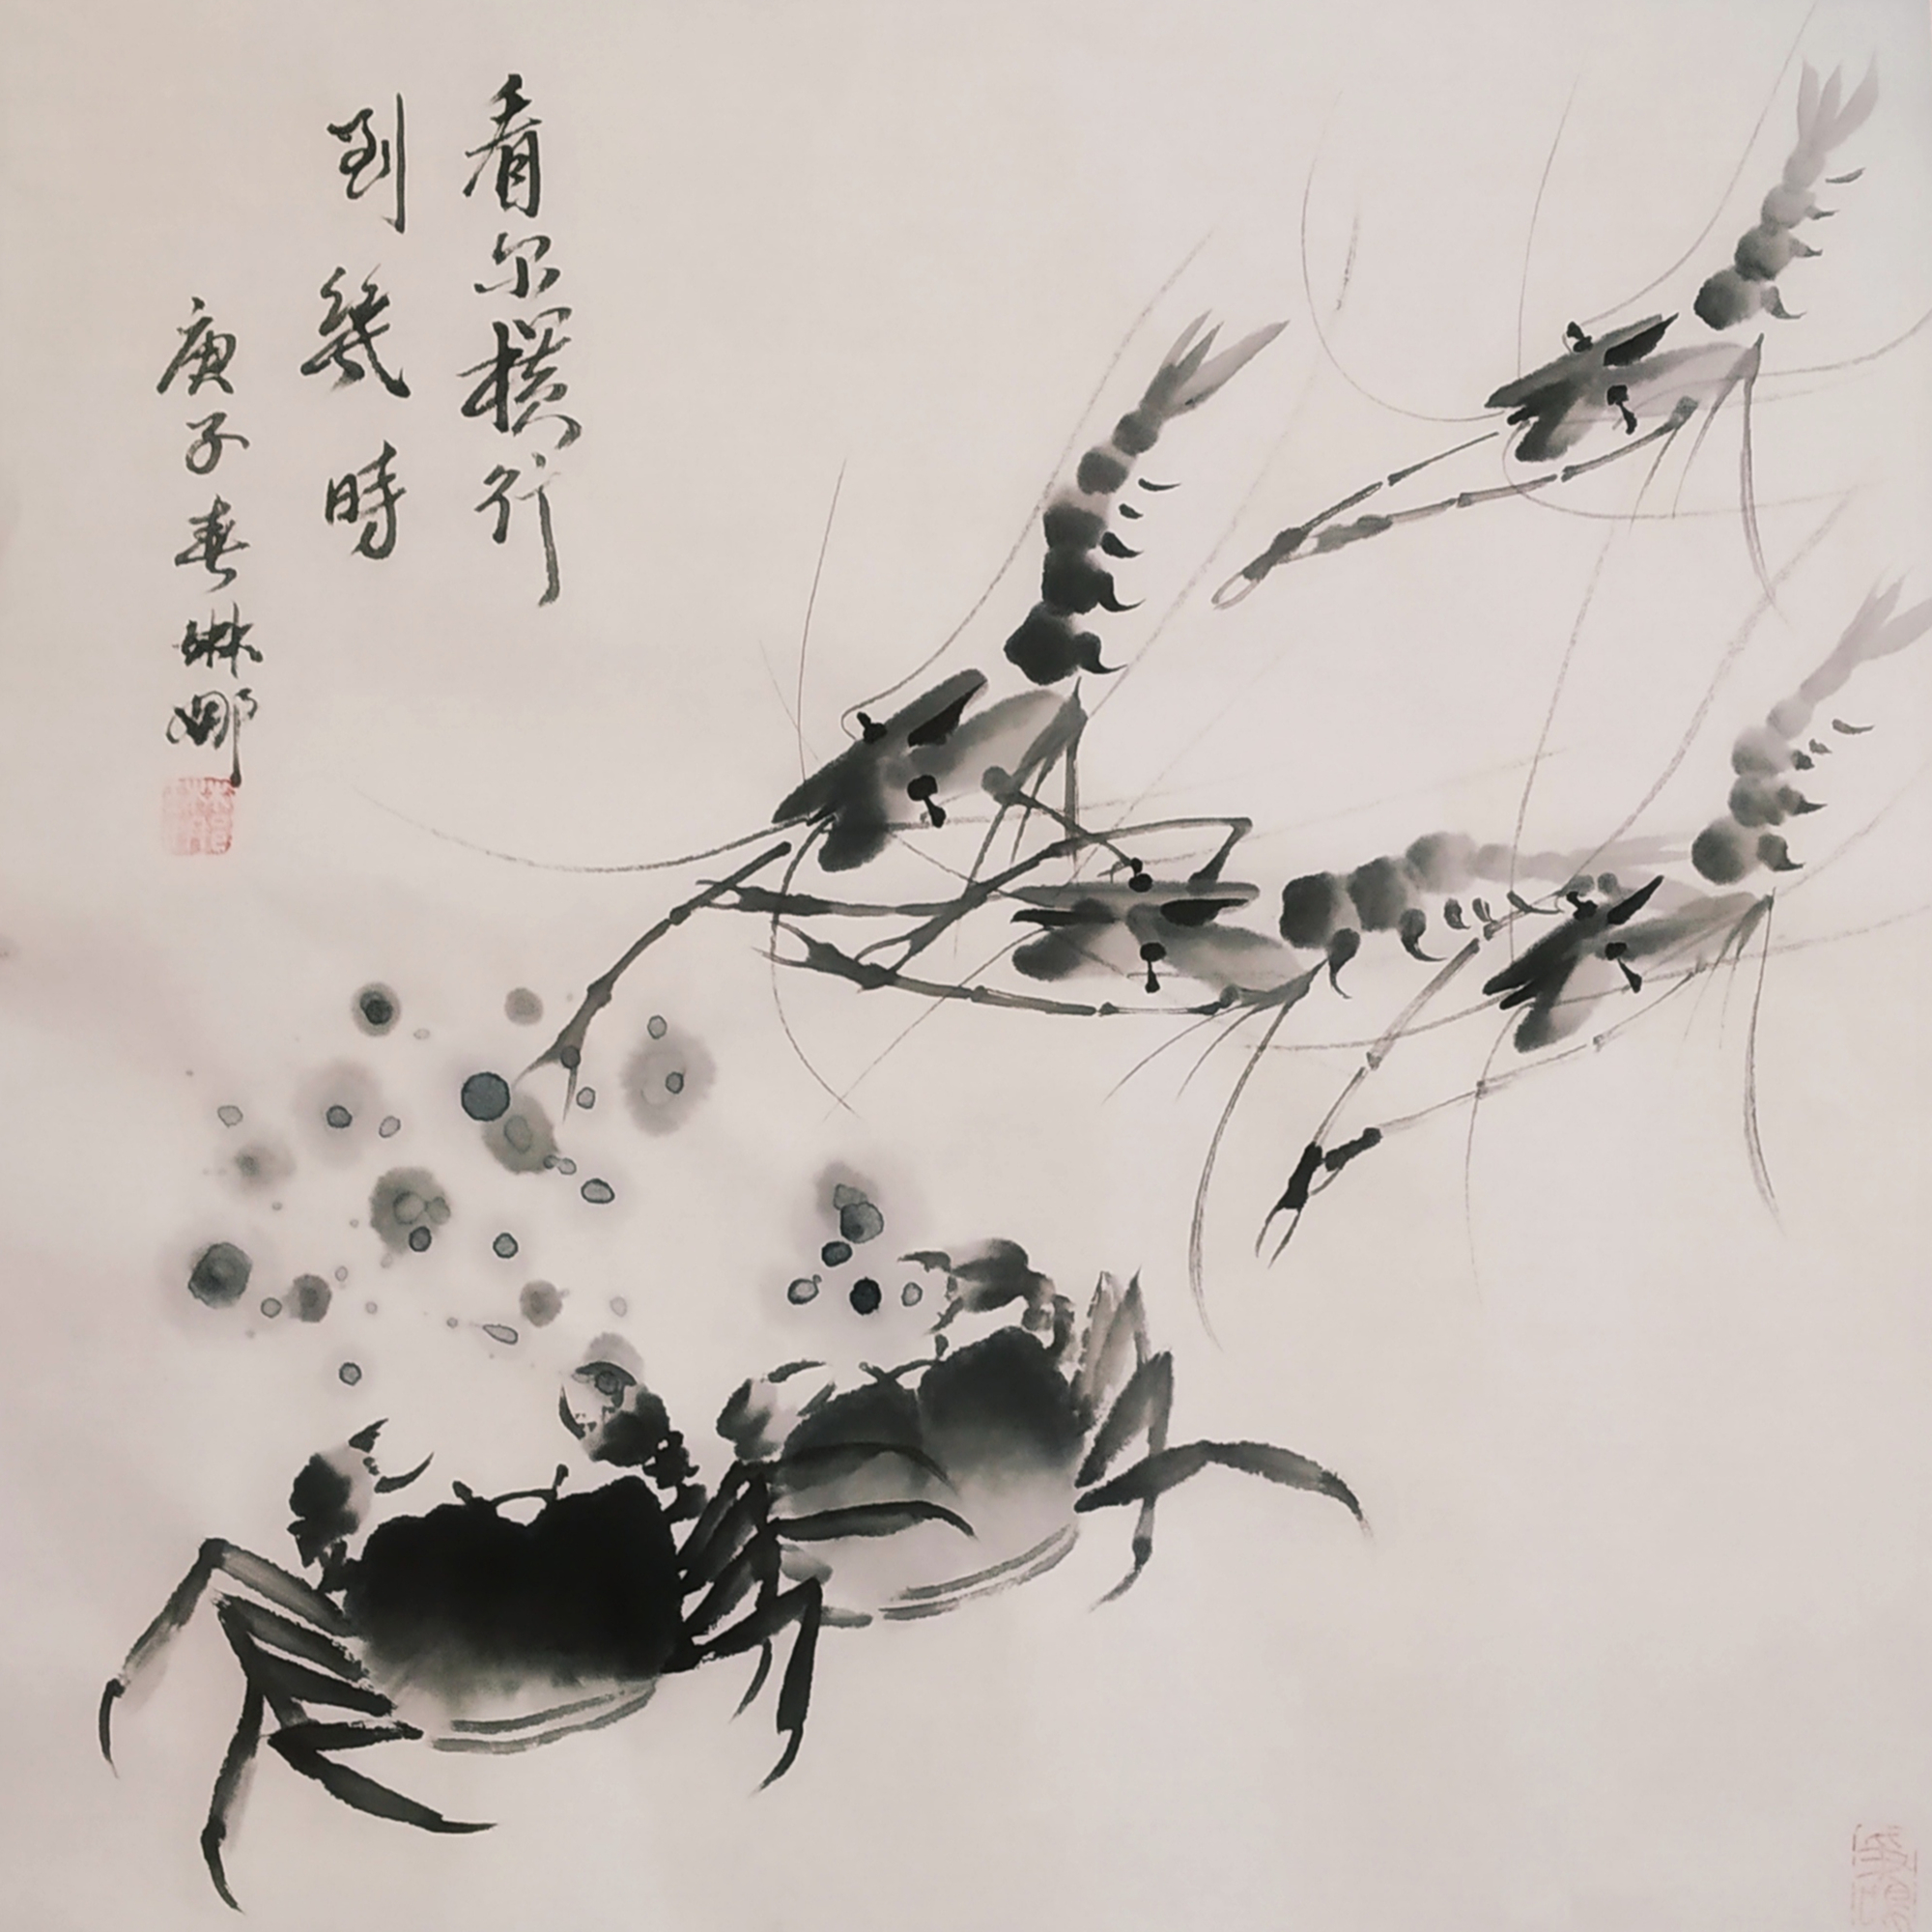 看尔横行
到幾時
庚子春琳娜